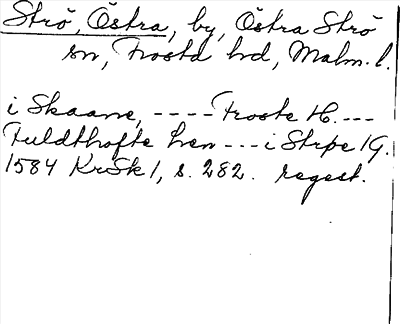 Strö, Östra, by, Östra Strö
sn, Frosta hd, Malm. l.
i Skaane, ---- Froste H. ---
Fuldthofte Len --- i Strpe 1 G.
1584 KrSk 1, s. 282. regest.